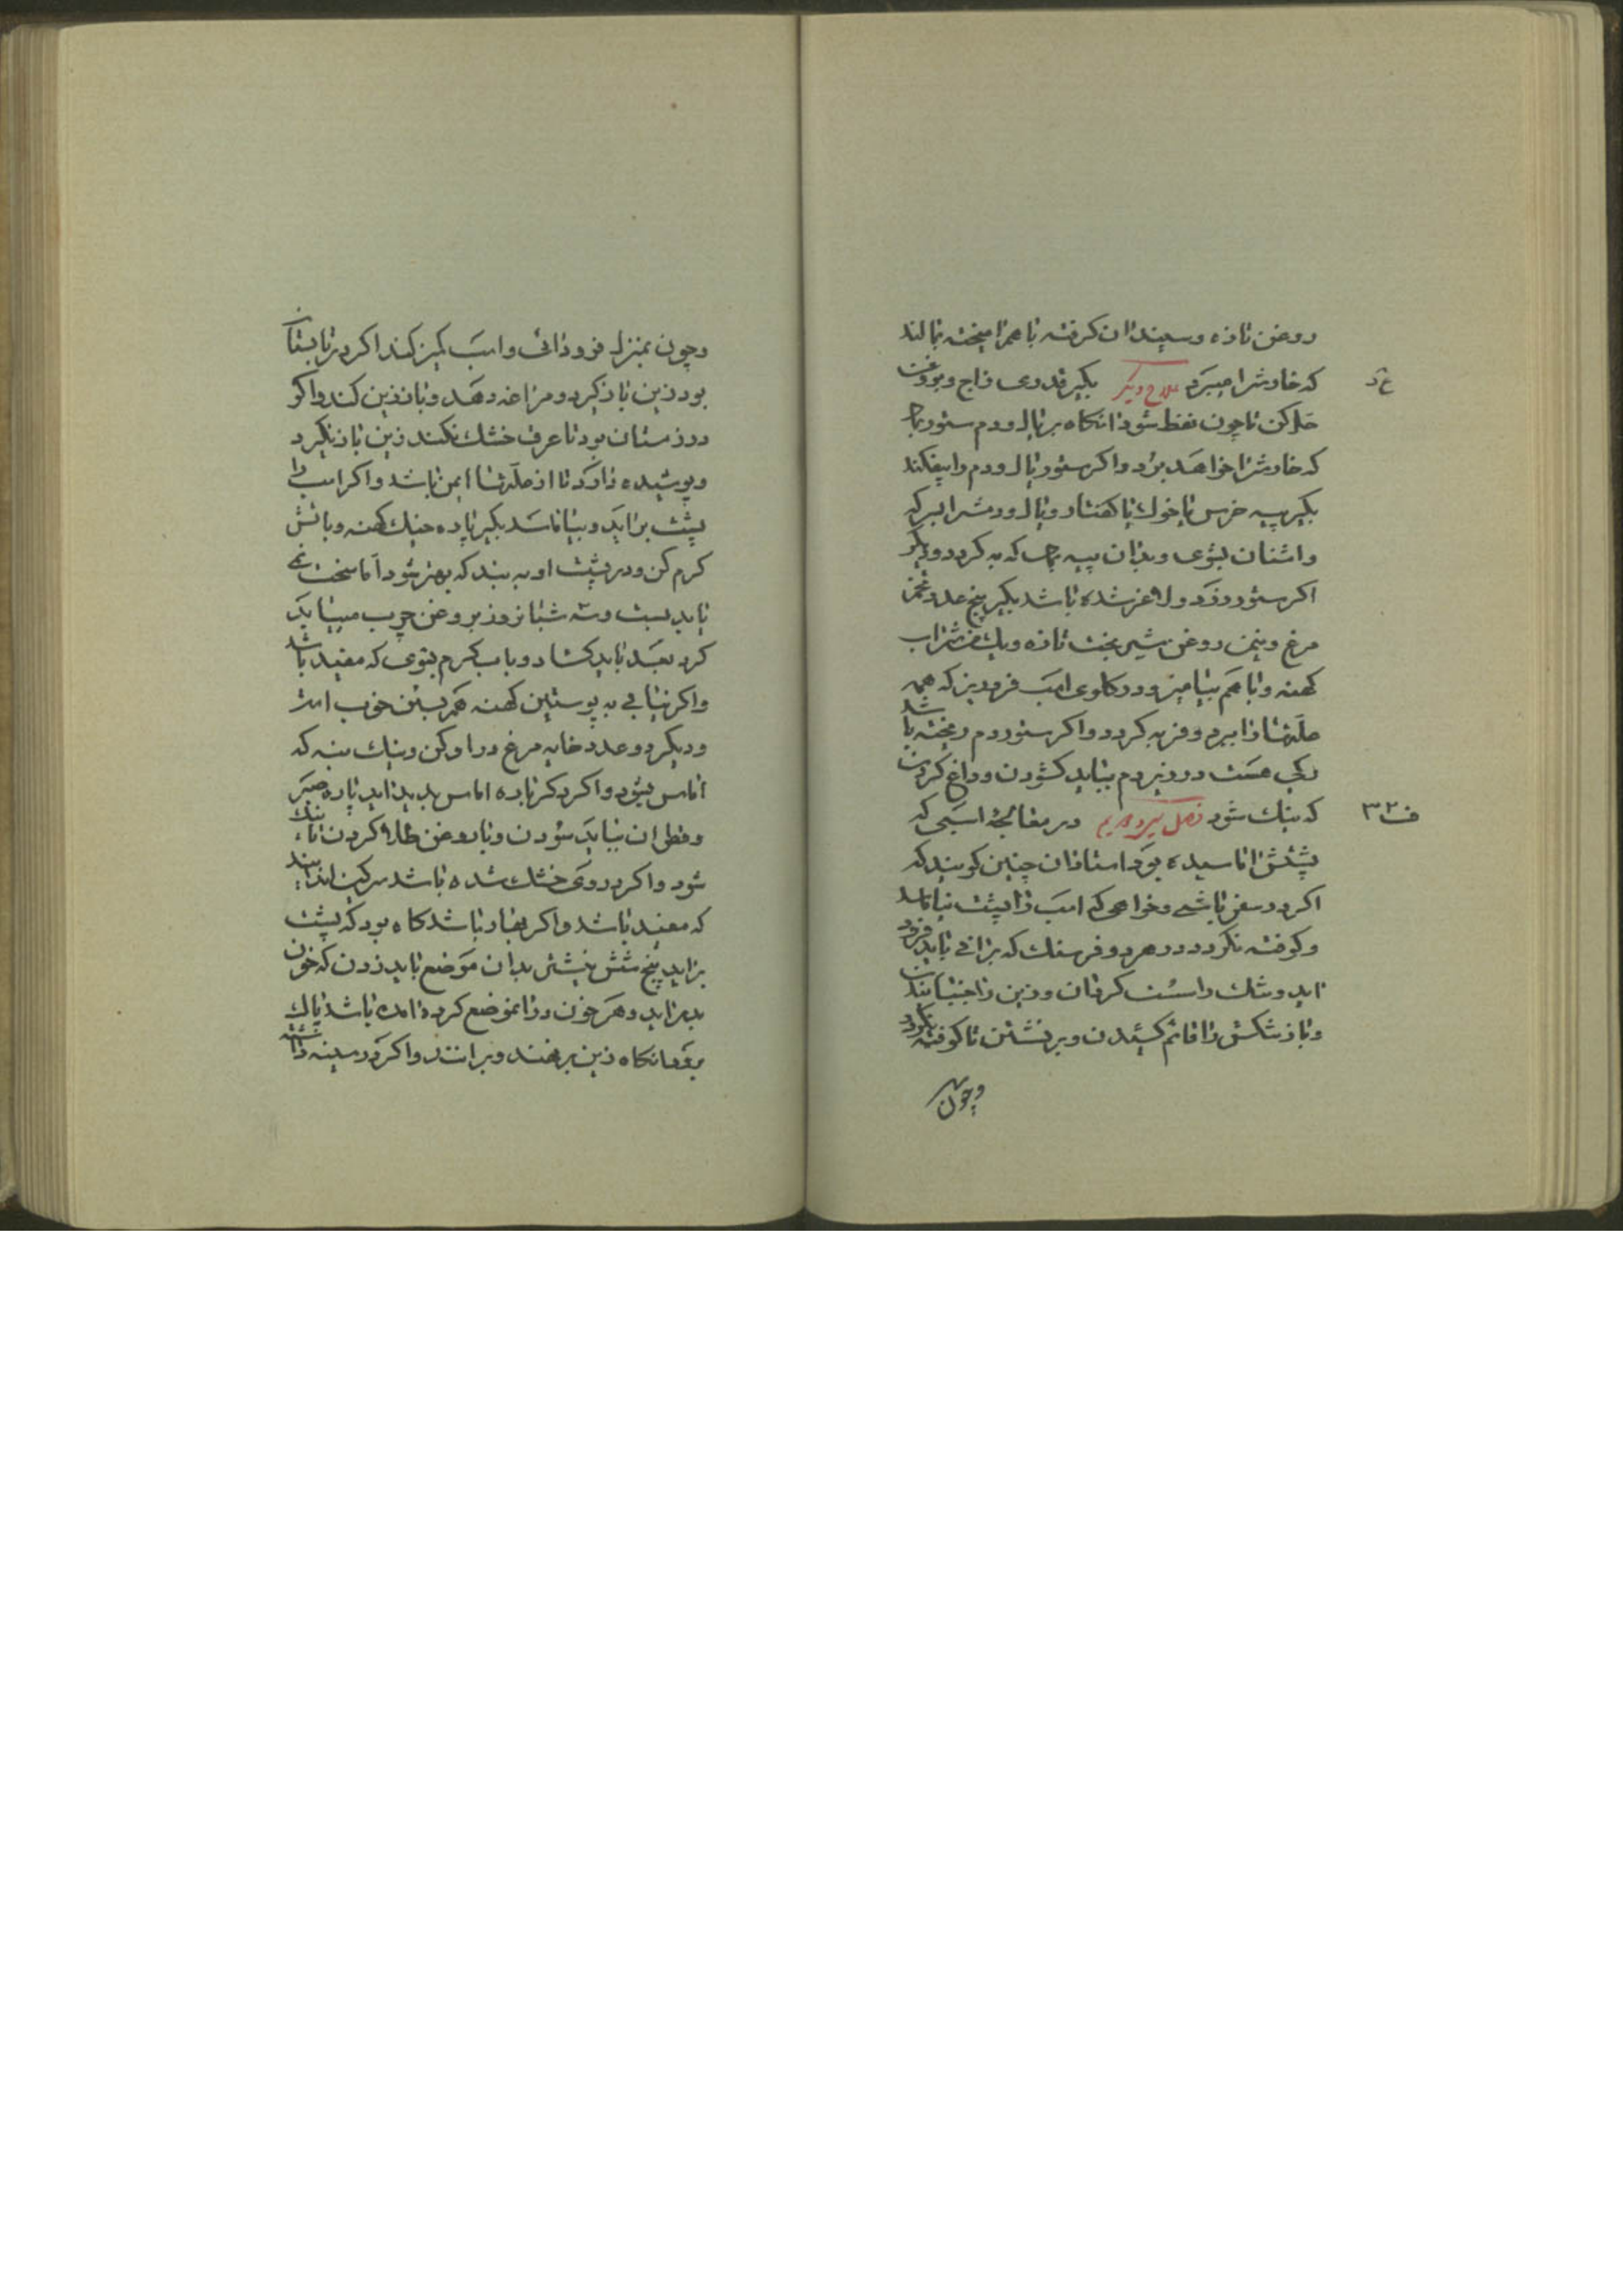 روغن تازه و سپندان کرفته باهم امیخته بمالند
که خارش را میبرد علاج دیکر بکیر قدری زاج و بروغن
حل کن تا چون نفط شود انکاه بر یال و دم ستور
که خارش را خواهد برد و اکر ستور یال و دم را بیفکند
بکیر پیه خرس یا خوک یا کفتار و یال و دمش را
و اشنان بشوی و بدان پیه که به کردد و دیکر
اکر ستور زرد و لاغر شده باشد بکیر پنج عدد تخم
مرغ و نیم من روغن شیر بخت تازه و یک من شراب
کهنه و با هم بیامیز و در کلوی اسب فرو ریز که همه
علتها را ببرد و فربه کردد و اکر ستور دم ریخته باشد
رکی هست در زیر دم بباید کشودن و داغ کردن
که نیک شود فصل سی و دویم در معالجهٔ اسبی که
پشتش اماسیده بود استادان چنین کویند که
اکر در سفر باشی و خواهی که اسب را پشت نیاماسد
و کوفته نکردد در هر دو فرسنک که برانی باید فرود
اید و تنک را سست کردن و زین را جنبانیدن
و باز تنکش را قائم کشیدن و بر نشستن تا کوفته نکردد
وچون
ف ۳۲
وچون بمنزل فرود ائی و اسب کمیز کند اکر در تابستان
بود زین باز کیرد و مراغه دهد و باز زین کند و اکر
در زمستان بود تا عرق خشک نکند زین باز نکیرد
و پوشیده دارد تا از علتها ایمن باشد و اکر اسب را
پشت براید و بیاماسد بکیر پاره خیک کهنه و باتش
کرم کن و در پشت او به بند که بهتر شود اما سخت نمی
باید بست و سه شبانروز بروغن چرب میباید
کرد بعد باید کشاد و باب کرم بشوی که مفید باشد
و اکر نیابی به پوستین کهنه هم بستن خوب است
و دیکر دو عدد خایه مرغ در او کن و نیک ببند که
اماس بشود و اکر در کرتابه اماس پدید اید پاره صبر
و قطران بباید سودن و با روغن طلا کردن تا نیک
شود و اکر در وی خشک شده باشد سرکین اندایند
که مفید باشد و اکر بغار باشد کاه بود که پشت
براید پنج شش نیشتر بدان موضع باید زدن که خون
بدر اید و هر خون در انموضع کرد امده باشد پاک
برود انکاه زین بر نهند و برانند و اکر در سینه داشته